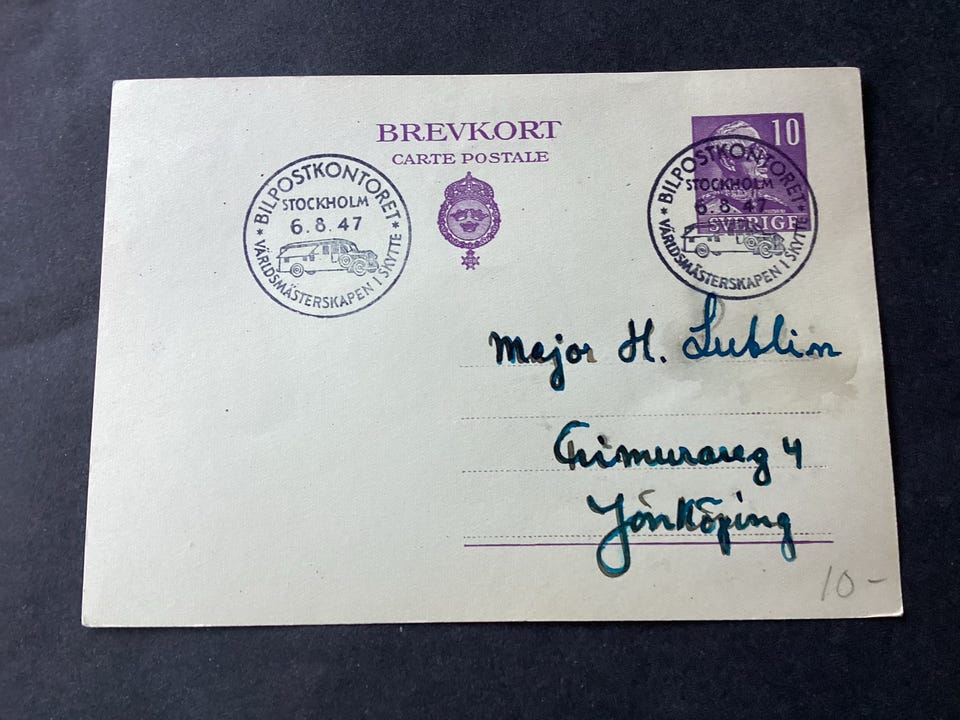 BREVKORT
CARTE POSTALE
10
SVERIGE
* BILPOSTKONTORET *
STOCKHOLM
6.8.47
VÄRLDSMÄSTERSKAPEN I SKYTTE
* BILPOSTKONTORET *
STOCKHOLM
6.8.47
VÄRLDSMÄSTERSKAPEN I SKYTTE
Major H. Lublin
4
Jönköping
10-